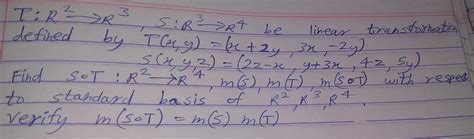 T: R² → R³, S: R³ → R⁴ be linear transformation
defined by T(x,y) = (x + 2y, 3x, -2y)
S(x,y,z) = (2z-x, y+3x, 4z, 5y)
Find S∘T: R² → R⁴, m(S) m(T) m(S∘T) with respect
to standard basis of R², R³, R⁴.
verify m(S∘T) = m(S) m(T)